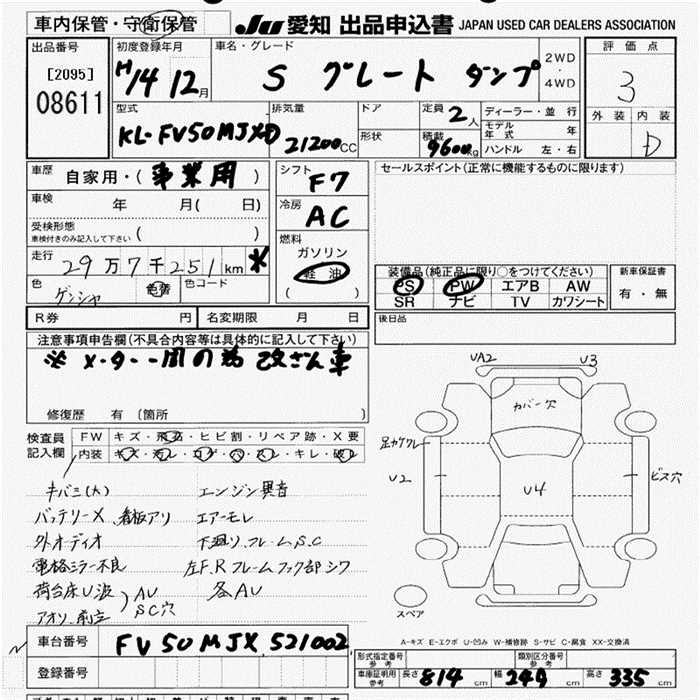 車内保管・守衛保管
JU 愛知 出品申込書 JAPAN USED CAR DEALERS ASSOCIATION
出品番号
[2095]
08611
初度登録年月
H14 12月
車名・グレード
S グレート ダンプ
2WD
・
4WD
評価点
3
外装 内装
D
型式
KL-FV50MJXD
排気量
21200CC
ドア
形状
定員 2人
積載 9600kg
ディーラー・並行
モデル年式 年
ハンドル 左・右
車歴
自家用・(事業用)
車検 年 月( 日)
受検形態
車検付きのみ記入して下さい ( )
走行
29万7千251km *
色 ゲンシャ
色替
色コード
シフト
F7
冷房
AC
燃料
ガソリン
軽油
( )
セールスポイント(正常に機能するものに限ります)
装備品(純正品に限り○をつけてください)
PS PW エアB AW
SR ナビ TV カワシート
新車保証書
有・無
R券 円 名変期限 月 日
後日品
注意事項申告欄(不具合内容等は具体的に記入して下さい)
※ メーター一周の為 改ざん車
修復歴 有 (箇所 )
検査員
記入欄
FW キズ・飛石・ヒビ割・リペア跡・X要
内装 キズ・汚レ・コゲ・穴・スレ・キレ・破レ
キバミ(大) エンジン異音
バッテリーX 看板アリ エアーモレ
外オーディオ 下廻リ、フレームS.C
電格ミラー不良 左F.Rフレームフック部シワ
荷台床U波 AU 各AU
アオリ、前立 SC穴
UA2 U3
カバー穴
足カケワレ
U2 U4 ビス穴
スペア
A-キズ E-エクボ U-凹み W-補修跡 S-サビ C-腐食 XX-交換済
車台番号 FV50MJX 521002
登録番号
形式指定番号 参考
類別区分番号 参考
車庫証明用 参考 長さ 814cm 幅 249cm 高さ 335cm